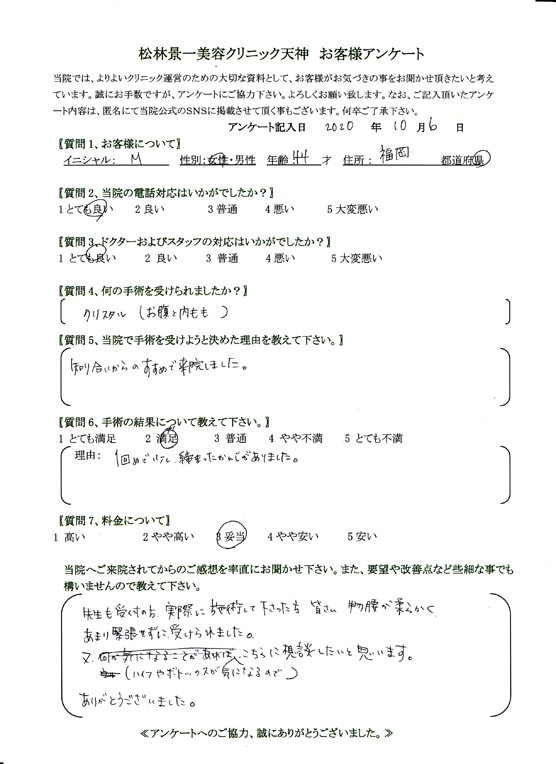 松林景一美容クリニック天神 お客様アンケート
当院では、よりよいクリニック運営のための大切な資料として、お客様がお気づきの事をお聞かせ頂きたいと考え
ています。誠にお手数ですが、アンケートにご協力下さい。よろしくお願い致します。なお、ご記入頂いたアンケ
ート内容は、匿名にて当院公式のSNSに掲載させて頂く事もございます。何卒ご了承下さい。
アンケート記入日 2020 年 10 月 6 日
〖質問1、お客様について〗
イニシャル: M 性別:女性・男性 年齢 44 才 住所: 福岡 都道府県
〖質問2、当院の電話対応はいかがでしたか?〗
1とても良い 2良い 3普通 4悪い 5大変悪い
〖質問3、ドクターおよびスタッフの対応はいかがでしたか?〗
1 とても良い 2 良い 3 普通 4悪い 5大変悪い
〖質問4、何の手術を受けられましたか?〗
クリスタル (お腹と内もも)
〖質問5、当院で手術を受けようと決めた理由を教えて下さい。〗
知り合いからのすすめで来院しました。
〖質問6、手術の結果について教えて下さい。〗
1とても満足 2満足 3普通 4やや不満 5とても不満
理由: 1回めでいして、締まったかんじがありました。
〖質問7、料金について〗
1 高い 2やや高い 3妥当 4やや安い 5安い
当院へご来院されてからのご感想を率直にお聞かせ下さい。また、要望や改善点など些細な事でも
構いませんので教えて下さい。
先生も受くすの方、実際に施術して下さった方 皆さん 物腰が柔らかく
あまり緊張せずに受けられました。
又、何か気になることがあれば、こちらに相談したいと思います。
(ハイフやボトックスが気になるので)
ありがとうございました。
≪アンケートへのご協力、誠にありがとうございました。≫